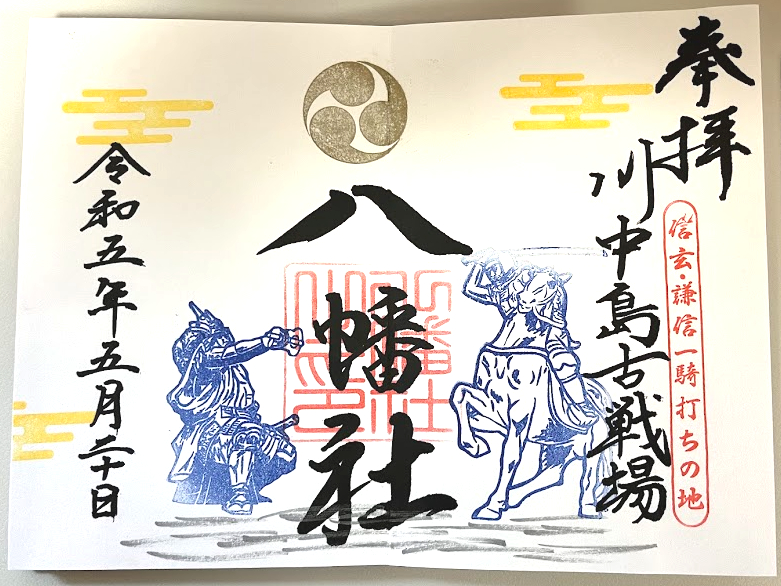 奉拝
川中島古戦場
信玄・謙信一騎打ちの地
八幡社
令和五年五月二十日